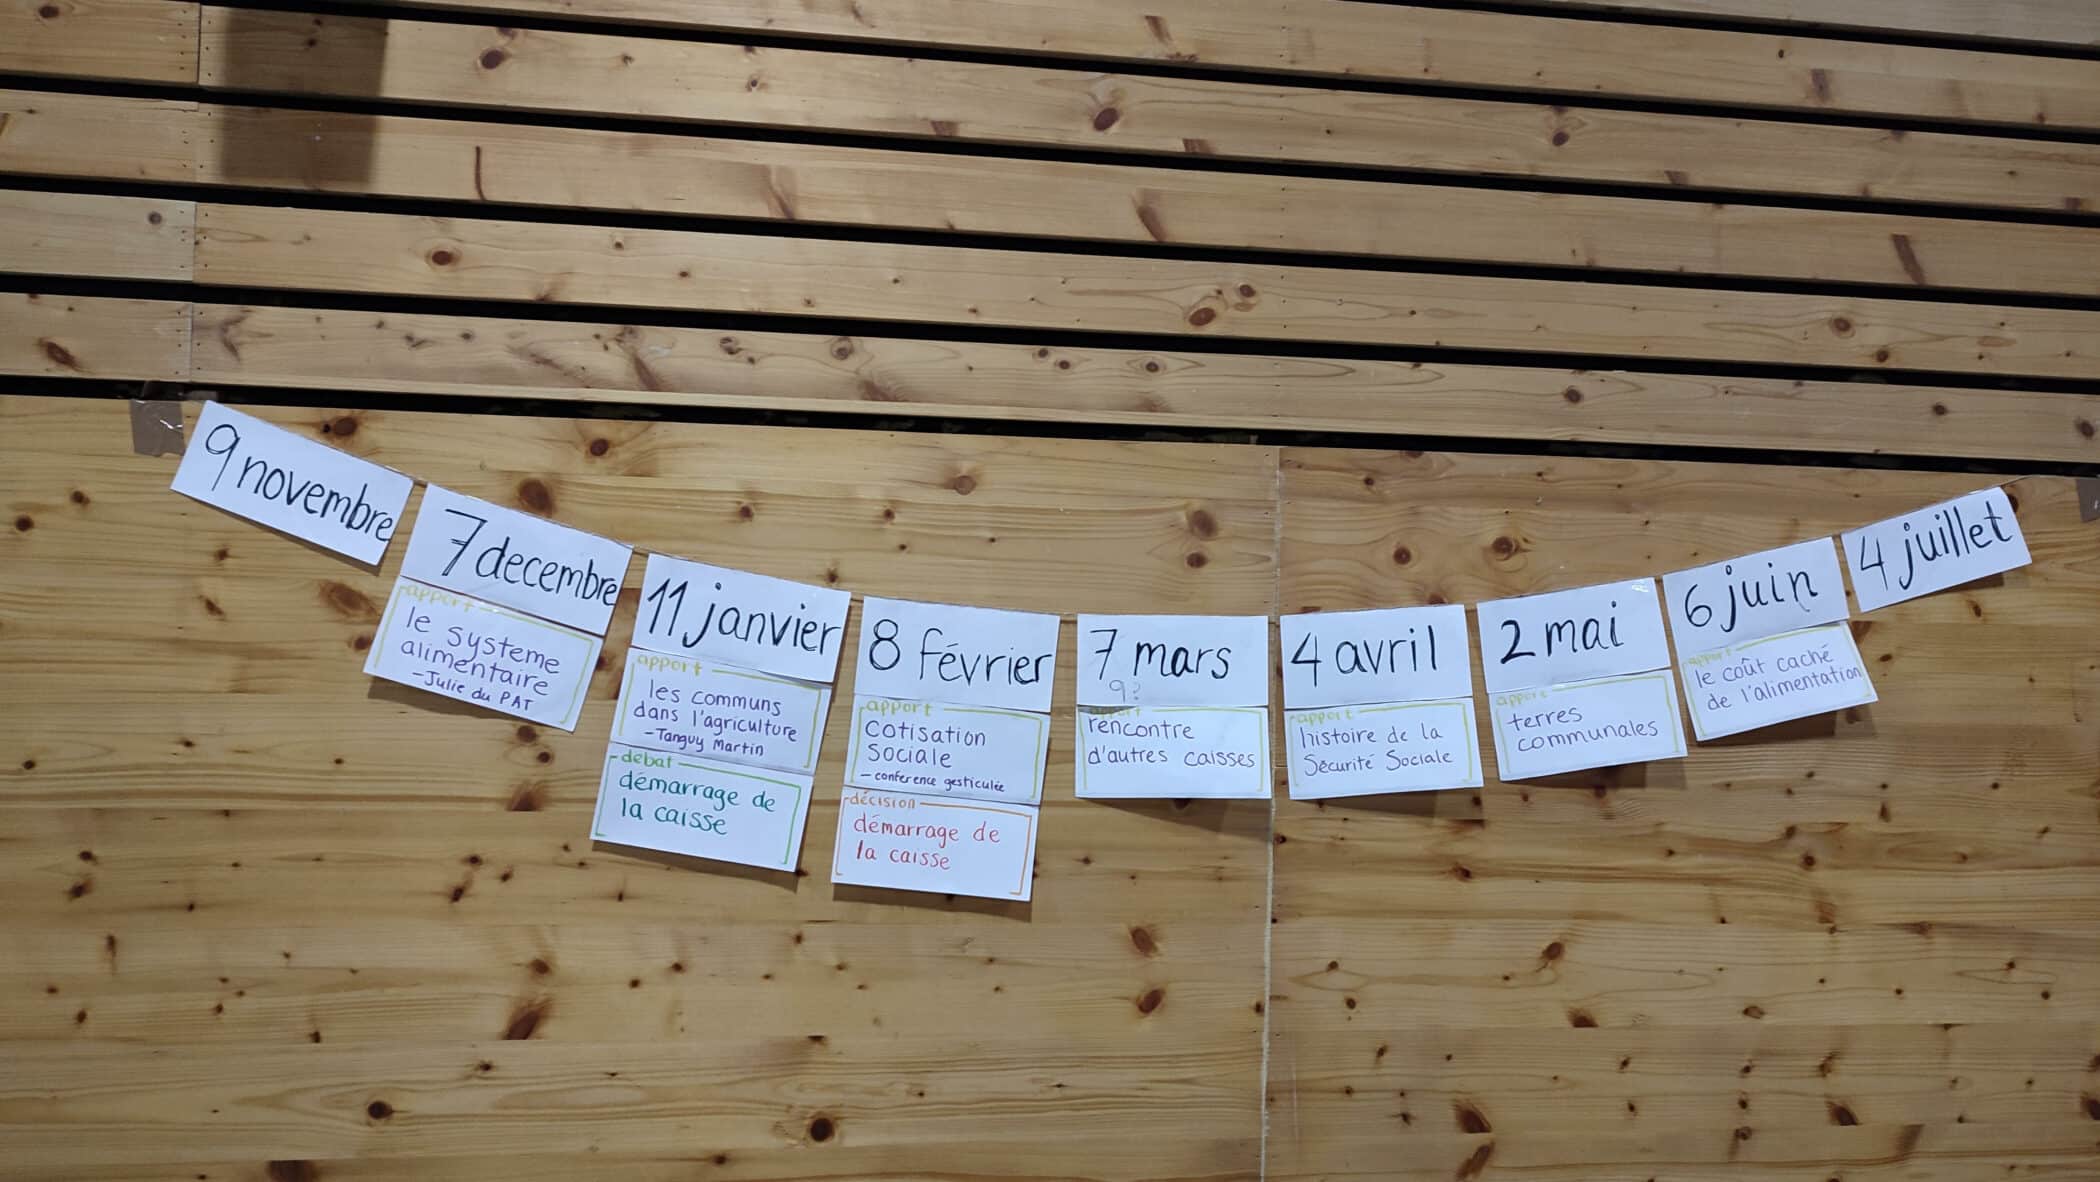 9 novembre
7 decembre
apport
le systeme
alimentaire
- Julie du PAT
11 janvier
apport
les communs
dans l'agriculture
- Tanguy Martin
débat
démarrage de
la caisse
8 février
apport
cotisation
sociale
- conference gesticulée
décision
démarrage de
la caisse
7 mars
9?
apport
rencontre
d'autres caisses
4 avril
apport
histoire de la
Sécurité Sociale
2 mai
apport
terres
communales
6 juin
apport
le coût caché
de l'alimentation
4 juillet